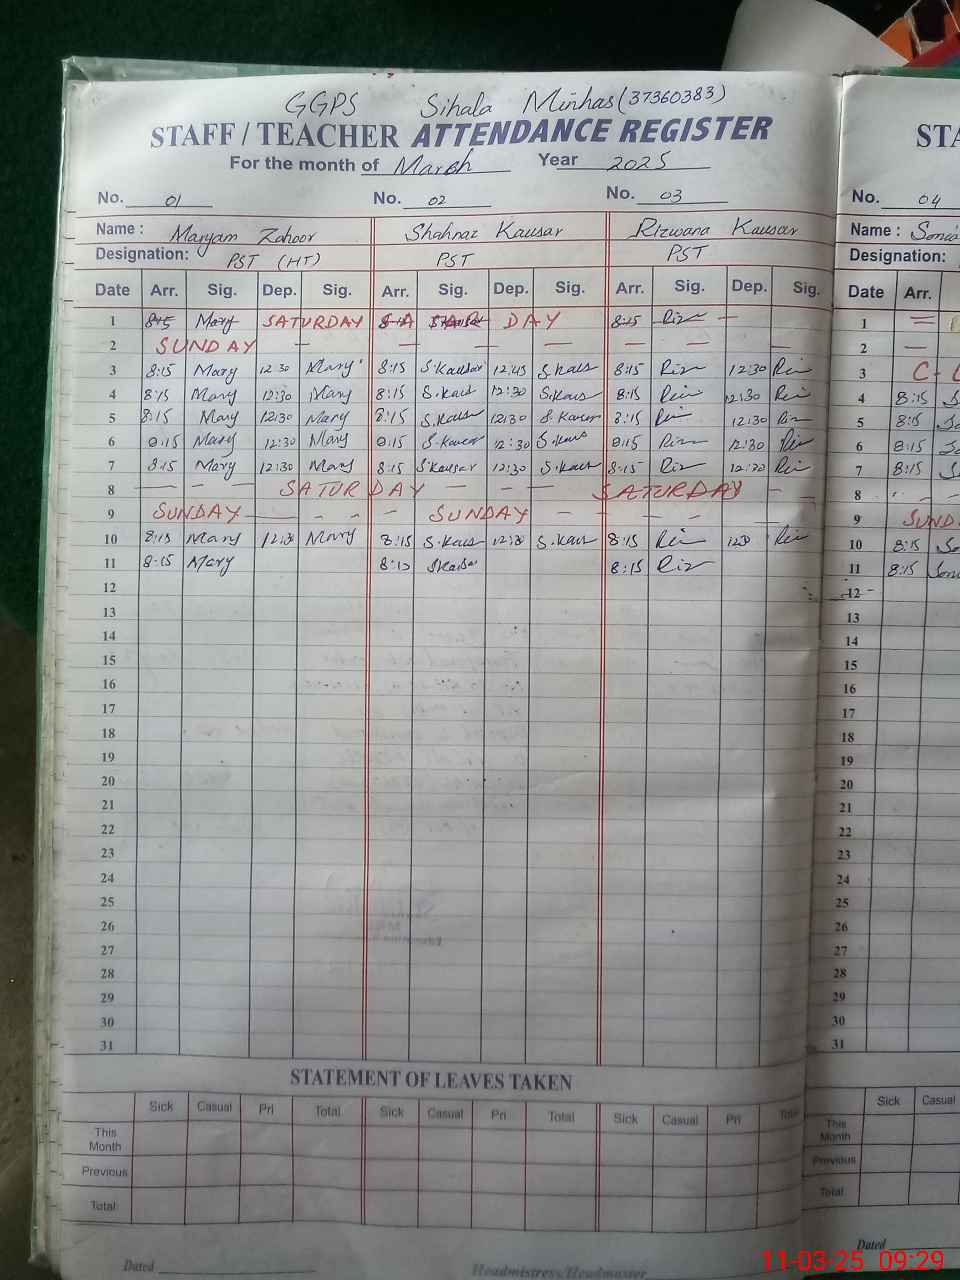 GGPS Sihala Minhas (37360383)
STAFF / TEACHER ATTENDANCE REGISTER STA
For the month of Marsh Year 2025
No. 01 No. 02 No. 03 No. 04
Name : Maryam Zahoor Shahnaz Kausar Rizwana Kausar Name : Sonia
Designation: PST (HT) PST PST Designation:
Date Arr. Sig. Dep. Sig. Arr. Sig. Dep. Sig. Arr. Sig. Dep. Sig. Date Arr.
1 8:15 Mary SATURDAY SATURDAY 8:15 Riz — 1 =
2 SUNDAY — — — — — — — 2 —
3 8:15 Mary 12:30 Mary 8:15 S.Kausar 12:45 S.Kaus 8:15 Riz 12:30 Riz 3 C-L
4 8:15 Mary 12:30 Mary 8:15 S.Kaus 12:30 S.Kaus 8:15 Riz 12:30 Riz 4 8:15 So
5 8:15 Mary 12:30 Mary 8:15 S.Kausar 12:30 S.Kausar 8:15 Riz 12:30 Riz 5 8:15 So
6 8:15 Mary 12:30 Mary 8:15 S.Kausar 12:30 S.Kaus 8:15 Riz 12:30 Riz 6 8:15 So
7 8:15 Mary 12:30 Mary 8:15 S.Kausar 12:30 S.Kaus 8:15 Riz 12:30 Riz 7 8:15 So
8 — — — SATURDAY — — — SATURDAY — — 8 - - -
9 SUNDAY — — — — SUNDAY — — — — — 9 SUND
10 8:15 Mary 12:30 Mary 8:15 S.Kaus 12:30 S.Kaus 8:15 Riz 12:30 Riz 10 8:15 So
11 8:15 Mary 8:15 S.Kausar 8:15 Riz 11 8:15 Soni
12 12
13 13
14 14
15 15
16 16
17 17
18 18
19 19
20 20
21 21
22 22
23 23
24 24
25 25
26 26
27 27
28 28
29 29
30 30
31 31
STATEMENT OF LEAVES TAKEN
Sick Casual Pri Total Sick Casual Pri Total Sick Casual Pri Total Sick Casual
This Month This Month
Previous Previous
Total: Total:
Dated Headmistress/Headmaster Dated
11-03-25 09:29